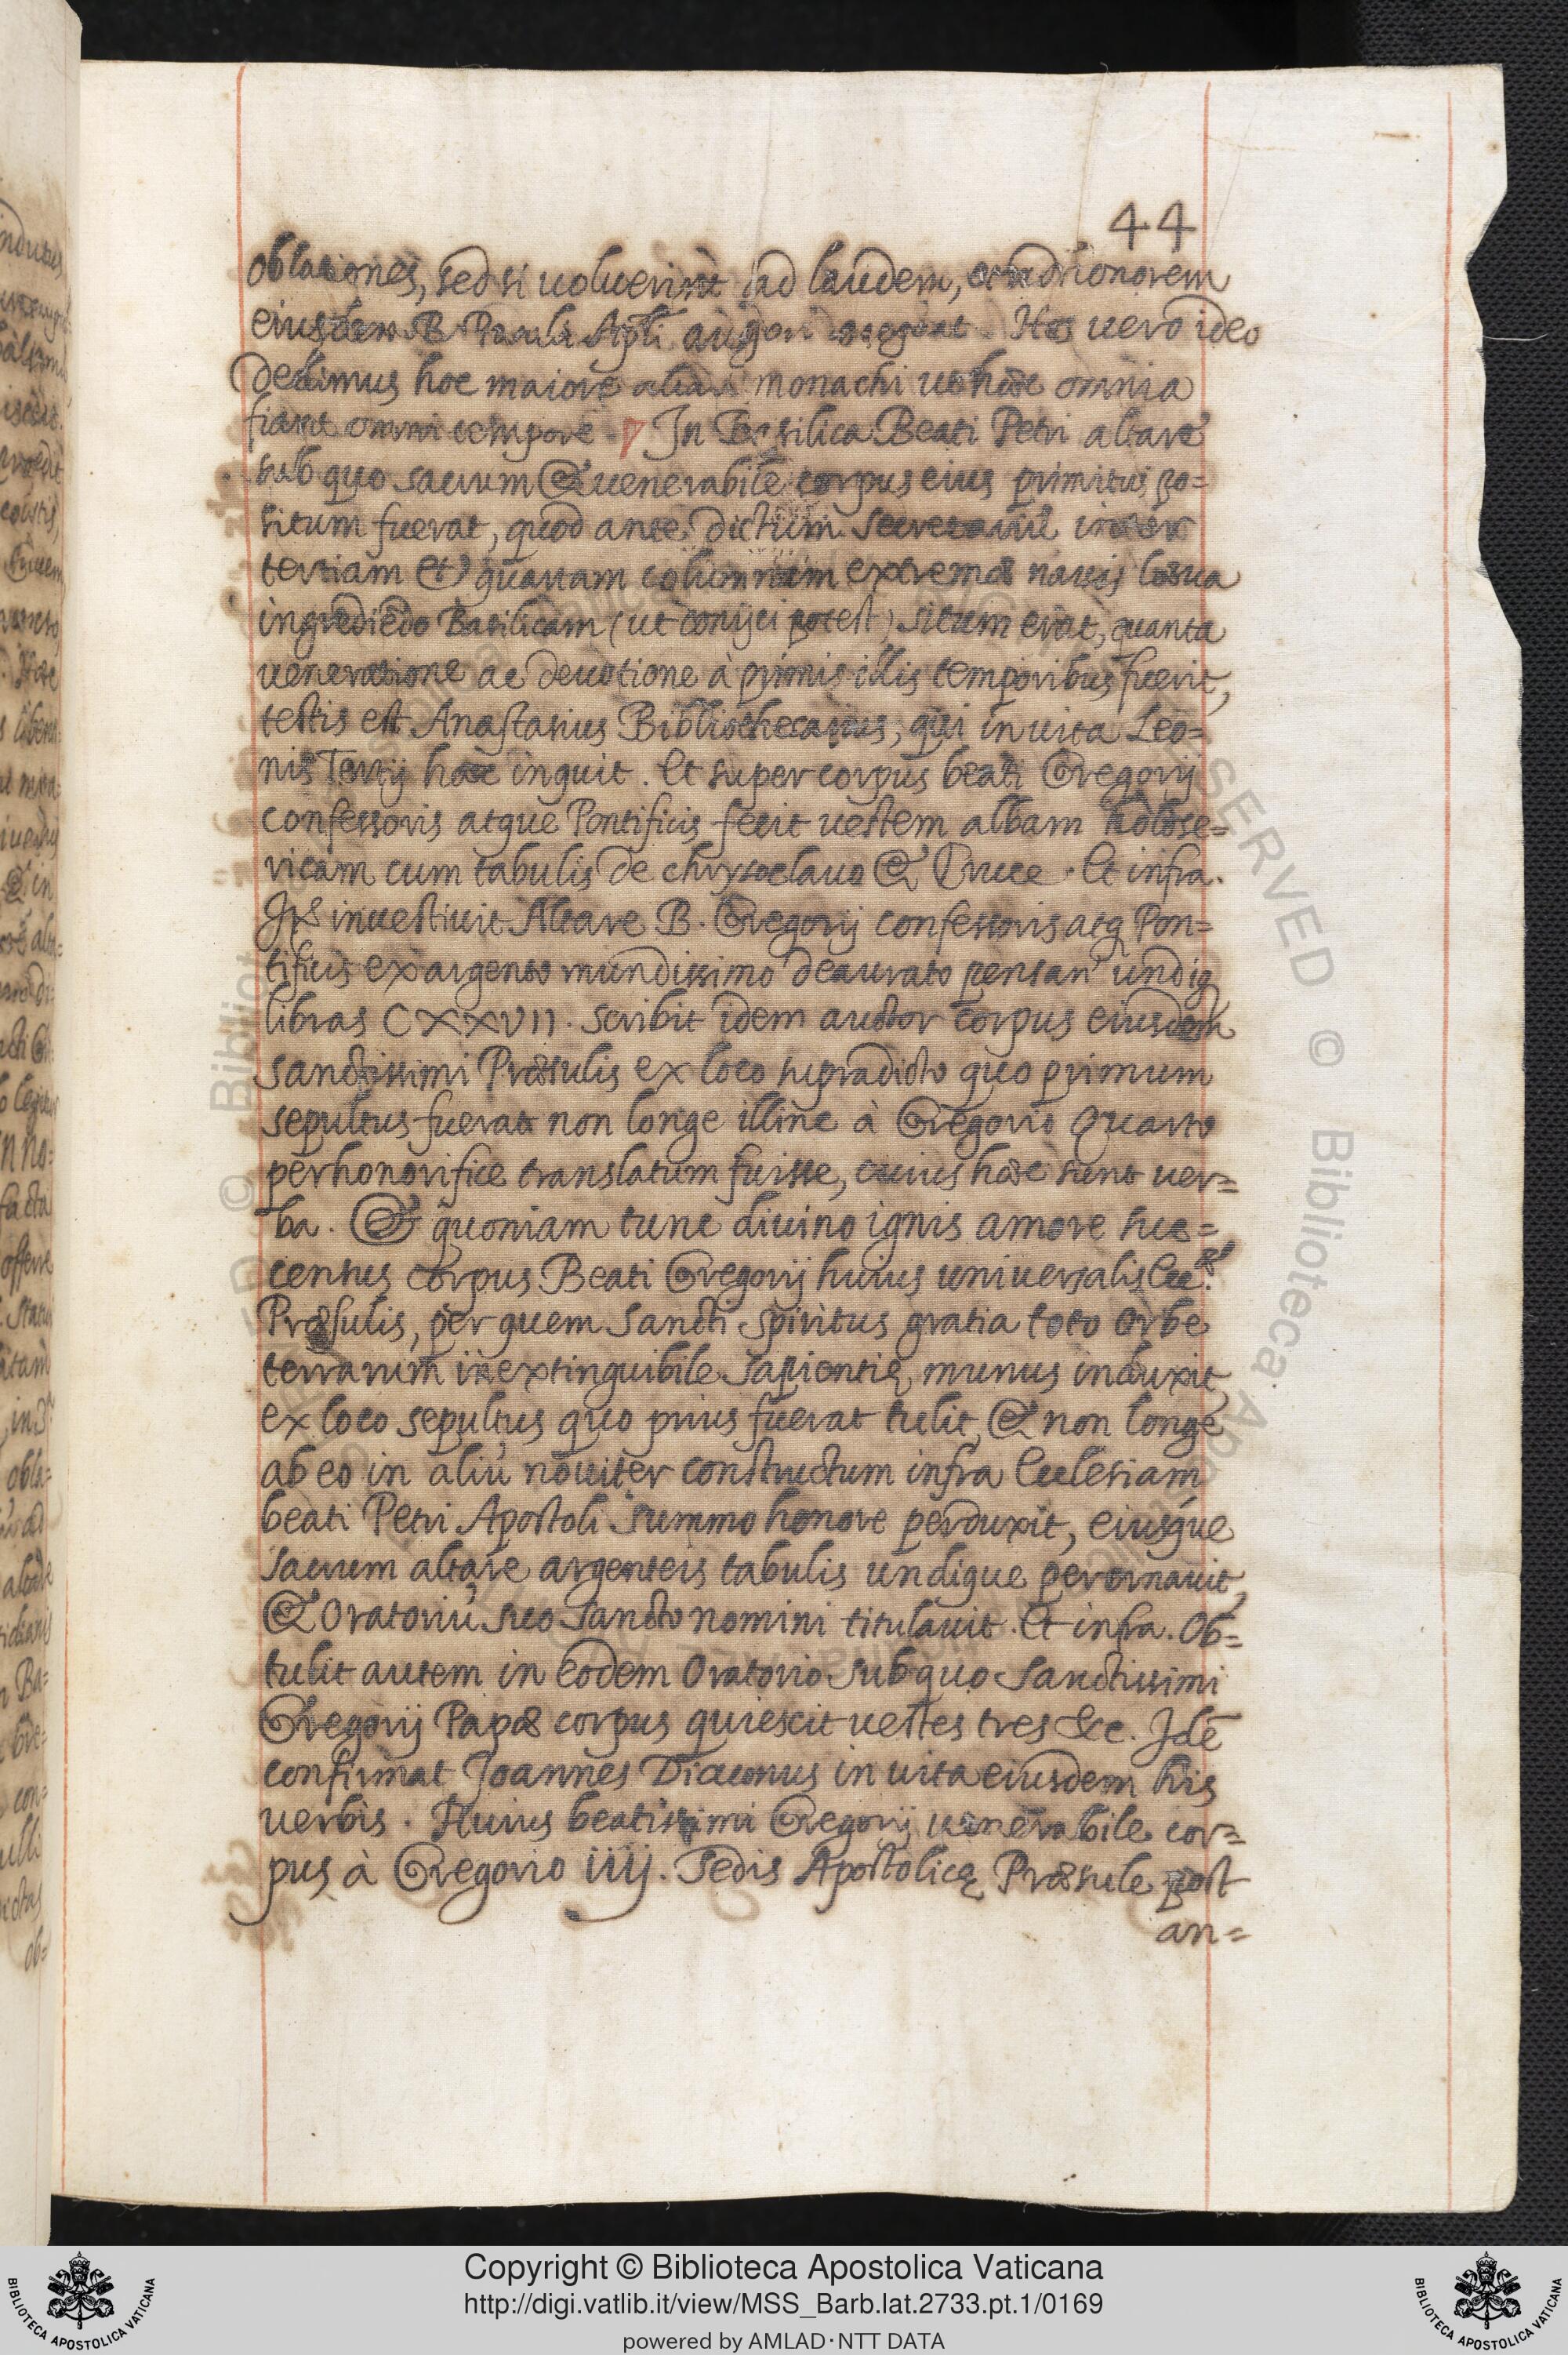 44
oblationes, sed si uoluerint ad laudem, et ad honorem
eiusdem B. Pauli Apli augeri Hos uero ideo
dedimus hoc maiore altari monachi ut hæc omnia
fiant omni tempore. In Basilica Beati Petri altare
sub quo sacrum & uenerabile corpus eius primitus po=
situm fuerat, quod ante dictum Secretarium inter
tertiam et quartam columnam extremæ nauis
ingrediēdo Basilicam (ut conijci potest) situm erat, quanta
ueneratione ac deuotione à primis illis temporibus fuerit,
testis est Anastasius Bibliothecarius, qui in uita Leo=
nis Tertij hæc inquit. Et super corpus beati Gregorij
confessoris atque Pontificis fecit uestem albam holose=
ricam cum tabulis de chrysoclauo & Cruce. Et infra.
Ipse inuestiuit Altare B. Gregorij confessoris atq Pon=
tificis ex argento mundissimo deaurato pensan undiq
libras CXXVII. scribit idem auctor corpus eiusdem
sanctissimi Præsulis ex loco supradicto quo primum
sepultus fuerat non longe illinc à Gregorio Quarto
perhonorifice translatum fuisse, cuius hæc sunt uer=
ba. Et quoniam tunc diuino ignis amore suc=
census corpus Beati Gregorij huius uniuersalis Ecc.æ
Præsulis, per quem Sancti Spiritus gratia toto orbe
terrarum inextinguibile sapientię munus induxit,
ex loco sepultus quo prius fuerat tulit, & non longe
ab eo in aliū nouiter constructum infra Ecclesiam
beati Petri Apostoli summo honore perduxit, eiusque
sacrum altare argenteis tabulis undique perornauit,
& Oratoriū suo sancto nomini titulauit. Et infra. Ob=
tulit autem in eodem Oratorio sub quo Sanctissimi
Gregorij Papæ corpus quiescit uestes tres &c. Idē
confirmat Joannes Diaconus in uita eiusdem his
uerbis. Huius beatissimi Gregorij uenerabile cor=
pus à Gregorio iiij. Sedis Apostolicę Præsule post
an=
Copyright © Biblioteca Apostolica Vaticana
http://digi.vatlib.it/view/MSS_Barb.lat.2733.pt.1/0169
powered by AMLAD·NTT DATA
BIBLIOTECA APOSTOLICA VATICANA
BIBLIOTECA APOSTOLICA VATICANA